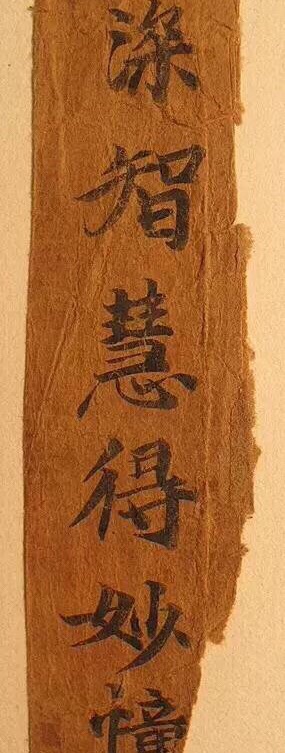 深智慧得妙幢